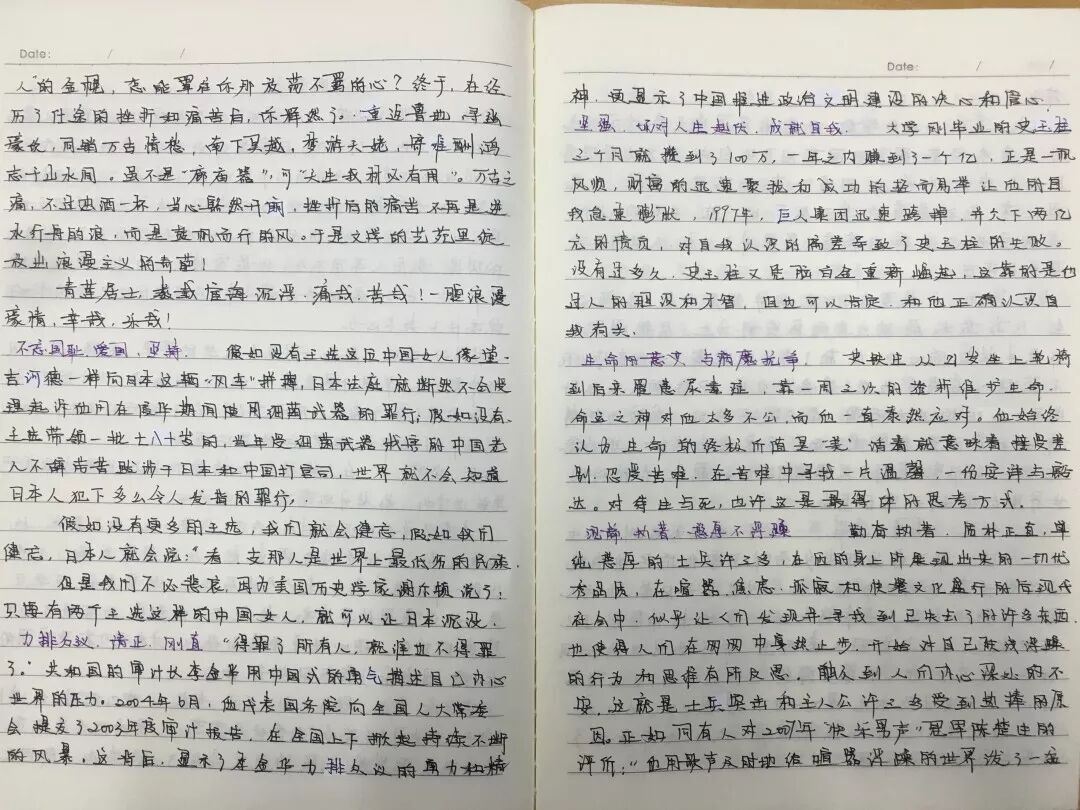 Date: / /
人"的金棍,怎能罩住你那放荡不羁的心?终于,在经
历了仕途的挫折和痛苦后,你释然了。重返鲁地,寻
豪饮,同销万古情愁,南下吴越,梦游天姥,将难酬鸿
志于山水间。虽不是"廊庙器",可"天生我材必有用"。万古之
痛,不过浊酒一杯,当心豁然开阔,挫折后的痛苦不再是逆
水行舟的浪,而是鼓帆而行的风。于是文学的艺苑里绽
放出浪漫主义的奇葩!
青莲居士,宦海沉浮,痛哉,苦哉!一腔浪漫
豪情,幸哉,乐哉!
不忘国耻,爱国,坚持 假如没有王选这位中国女人像堂·
吉诃德一样向日本这辆"风车"拼搏,日本法庭就断然不会受
理起诉他们在侵华期间使用细菌武器的罪行;假如没有
王选带领一批七八十岁的,当年受细菌武器残害的中国老
人不辞劳苦跋涉于日本和中国打官司,世界就不会知道
日本人犯下多么令人发指的罪行。
假如没有更多的王选,我们就会健忘,假如我们
健忘,日本人就会说:"看,支那人是世界上最低劣的民族.
但是我们不必悲哀,因为美国历史学家谢尔顿说了:
只要有两个王选这样的中国女人,就可以让日本沉没.
力排众议,清正,刚直 "得罪了所有人,就谁也不得罪
了."共和国的审计长李金华用中国式的勇气描述自己内心
世界的压力。2004年6月,他代表国务院向全国人大常委
会提交了2003年度审计报告,在全国上下掀起持续不断
的风暴,这背后,显示了李金华力排众议的勇力和精
Date: / /
神,更显示了中国推进政治文明建设的决心和信心.
坚强,饱对人生起伏,成就自我. 大学刚毕业的史玉柱
三个月就赚到了100万,一年之内赚到了一个亿,正是一帆
风顺,财富的迅速聚拢和成功的轻而易举让他的自
我急速膨胀,1997年,巨人集团迅速跨掉,并欠下两亿
元的债负,对自我认识的偏差导致了史玉柱的失败。
没有过多久,史玉柱又凭脑白金重新崛起,这靠的是他
过人的胆识和才智,但也可以肯定,和他正确认识自
我有关.
生命的意义 与病魔抗争 史铁生从21岁坐上轮椅
到后来罹患尿毒症,靠一周三次的透析维护生命,
命运之神对他太多不公,而他一直泰然应对。他始终
认为生命的终极价值是"美"活着就意味着接受差
别,忍受苦难,在苦难中寻找一片温馨,一份安详与豁
达。对待生与死,也许这是最得体的思考方式.
沉静,执著,憨厚不浮躁 勤奋执著,质朴正直,单
纯憨厚的士兵许三多,在他的身上所展现出来的一切优
秀品质,在喧嚣、焦虑、孤寂和快餐文化盛行的后现代
社会中,似乎让人们发现并寻找到已失去了的许多东西,
也使得人们在匆匆中戛然止步,开始对自己肤浅浮躁
的行为和思维有所反思,触及到人们内心深处的不
安,这就是士兵突击和主人公许三多受到热捧的原
因。正如同有人对2007年"快乐男声"冠军陈楚生的
评价:"他用歌声及时地给喧嚣浮躁的世界泼了一盆